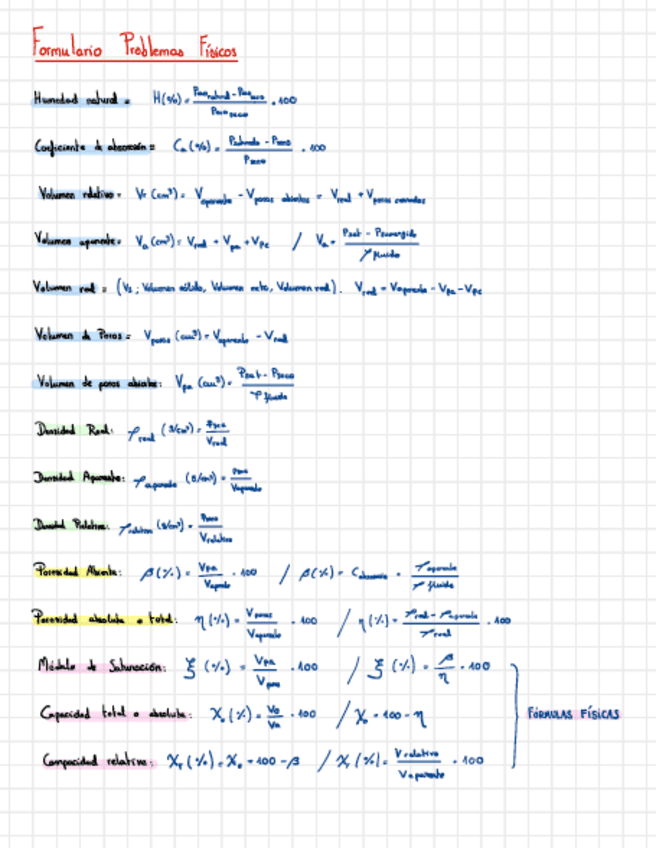 Formulario Problemas Físicos
Humedad natural = H(%) = (Peso natural - Peso seco) / Peso seco . 100
Coeficiente de absorción = Ca (%) = (Psaturado - Pseco) / Pseco . 100
Volumen relativo = Vr (cm³) = Vaparente - Vporos abiertos = Vreal + Vporos cerrados
Volumen aparente = Va (cm³) = Vreal + Vpa + Vpc / Va = (Psat - Psumergido) / ρ fluido
Volumen real = (Vs; Volumen sólido, Volumen neto, Volumen real). Vreal = Vaparente - Vpa - Vpc
Volumen de Poros = Vporos (cm³) = Vaparente - Vreal
Volumen de poros abiertos: Vpa (cm³) = (Psat - Pseco) / ρ fluido
Densidad Real: ρreal (g/cm³) = Pseco / Vreal
Densidad Aparente: ρaparente (g/cm³) = Pseco / Vaparente
Densidad Relativa: ρrelativa (g/cm³) = Pseco / Vrelativo
Porosidad Abierta: β(%) = Vpa / Vaparente . 100 / β(%) = Cabsorción . ρaparente / ρ fluido
Porosidad absoluta o total: η(%) = Vporos / Vaparente . 100 / η(%) = (ρreal - ρaparente) / ρreal . 100
Módulo de Saturación: ξ (%) = Vpa / Vporos . 100 / ξ (%) = β / η . 100
Capacidad total o absoluta: X₀ (%) = / X₀ = 100 - η
Compacidad relativa: Xr (%) = X₀ = 100 - β / Xr (%) = Vrelativo / Vaparente . 100
FÓRMULAS FÍSICAS